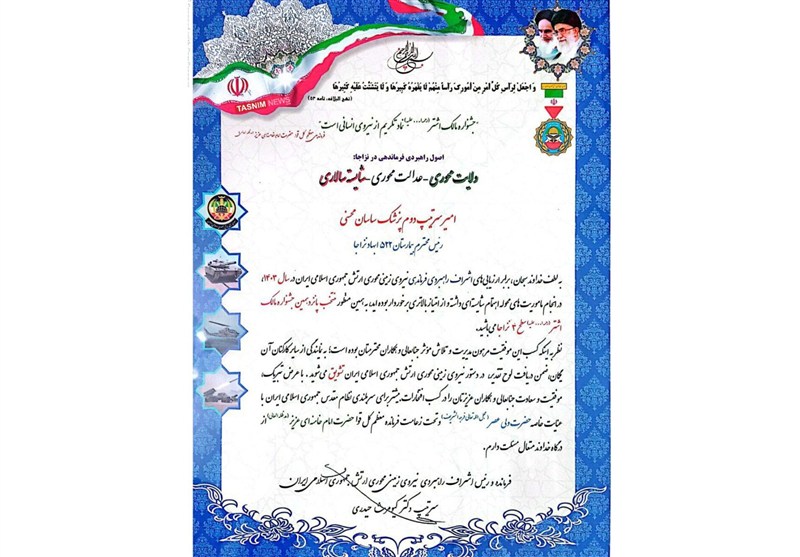 وَ اجْعَلْ لِرَأْسِ كُلِّ أَمْرٍ مِنْ أُمُورِكَ رَأْساً مِنْهُمْ لَا يَقْهَرُهُ كَبِيرُهَا وَ لَا يَتَشَتَّتُ عَلَيْهِ كَثِيرُهَا
(نهج البلاغه، نامه ۵۳)
TASNIM NEWS
"جشنواره مالک اشتر نماد تکریم از نیروی انسانی است"
اصول راهبردی فرماندهی در نزاجا:
ولایت محوری - عدالت محوری - شایسته سالاری
امیر سرتیپ دوم پزشک ساسان محسنی
رئیس محترم بیمارستان ۵۲۲ نزاجا
به لطف خداوند سبحان، برابر ارزیابی‌های اشراف راهبردی فرماندهی نیروی زمینی محوری ارتش جمهوری اسلامی ایران در سال ۱۴۰۳،
در انجام ماموریت های محوله اهتمام شایسته ای داشته و از امتیاز بالاتری برخوردار بوده اید، به همین منظور منتخب پانزدهمین جشنواره مالک
اشتر سطح ۴ نزاجا می باشید.
نظر به اینکه کسب این موفقیت مرهون مدیریت و تلاش مؤثر جنابعالی و همکاران محترمتان بوده است؛ به نمایندگی از سایر کارکنان آن
یگان، ضمن دریافت لوح تقدیر، در دستور نیروی زمینی محوری ارتش جمهوری اسلامی ایران تشویق می شوید. با عرض تبریک،
موفقیت و سعادت جنابعالی و همکاران عزیزتان را در کسب افتخارات بیشتر برای سربلندی نظام مقدس جمهوری اسلامی ایران با
عنایت خاصه حضرت ولی عصر و تحت زعامت فرمانده معظم کل قوا حضرت امام خامنه ای عزیز از
درگاه خداوند متعال مسئلت دارم.
فرمانده و رئیس اشراف راهبردی نیروی زمینی محوری ارتش جمهوری اسلامی ایران
سرتیپ دکتر کیومرث حیدری